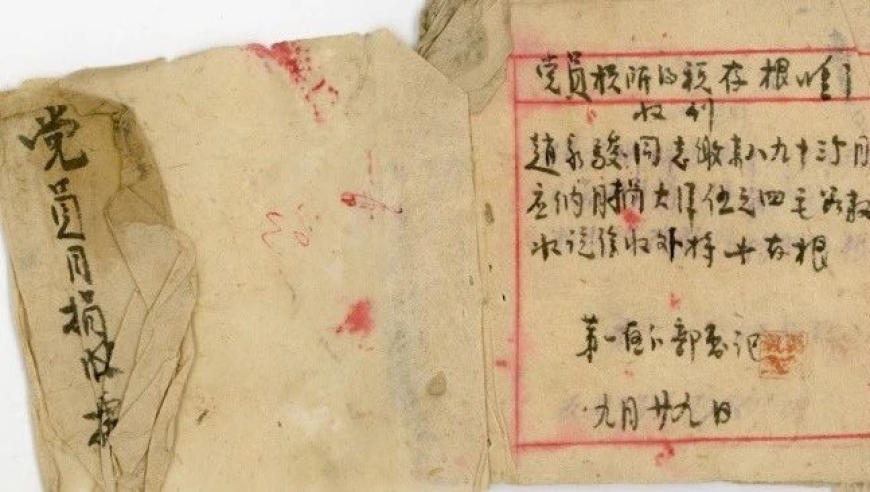 党员月捐收据
党员捐所的税存根
收到
趙永駿同志缴来八九十三个月
应纳月捐大洋伍元四毛如数
收讫除收外特此存根
第一支部書记
九月廿九日